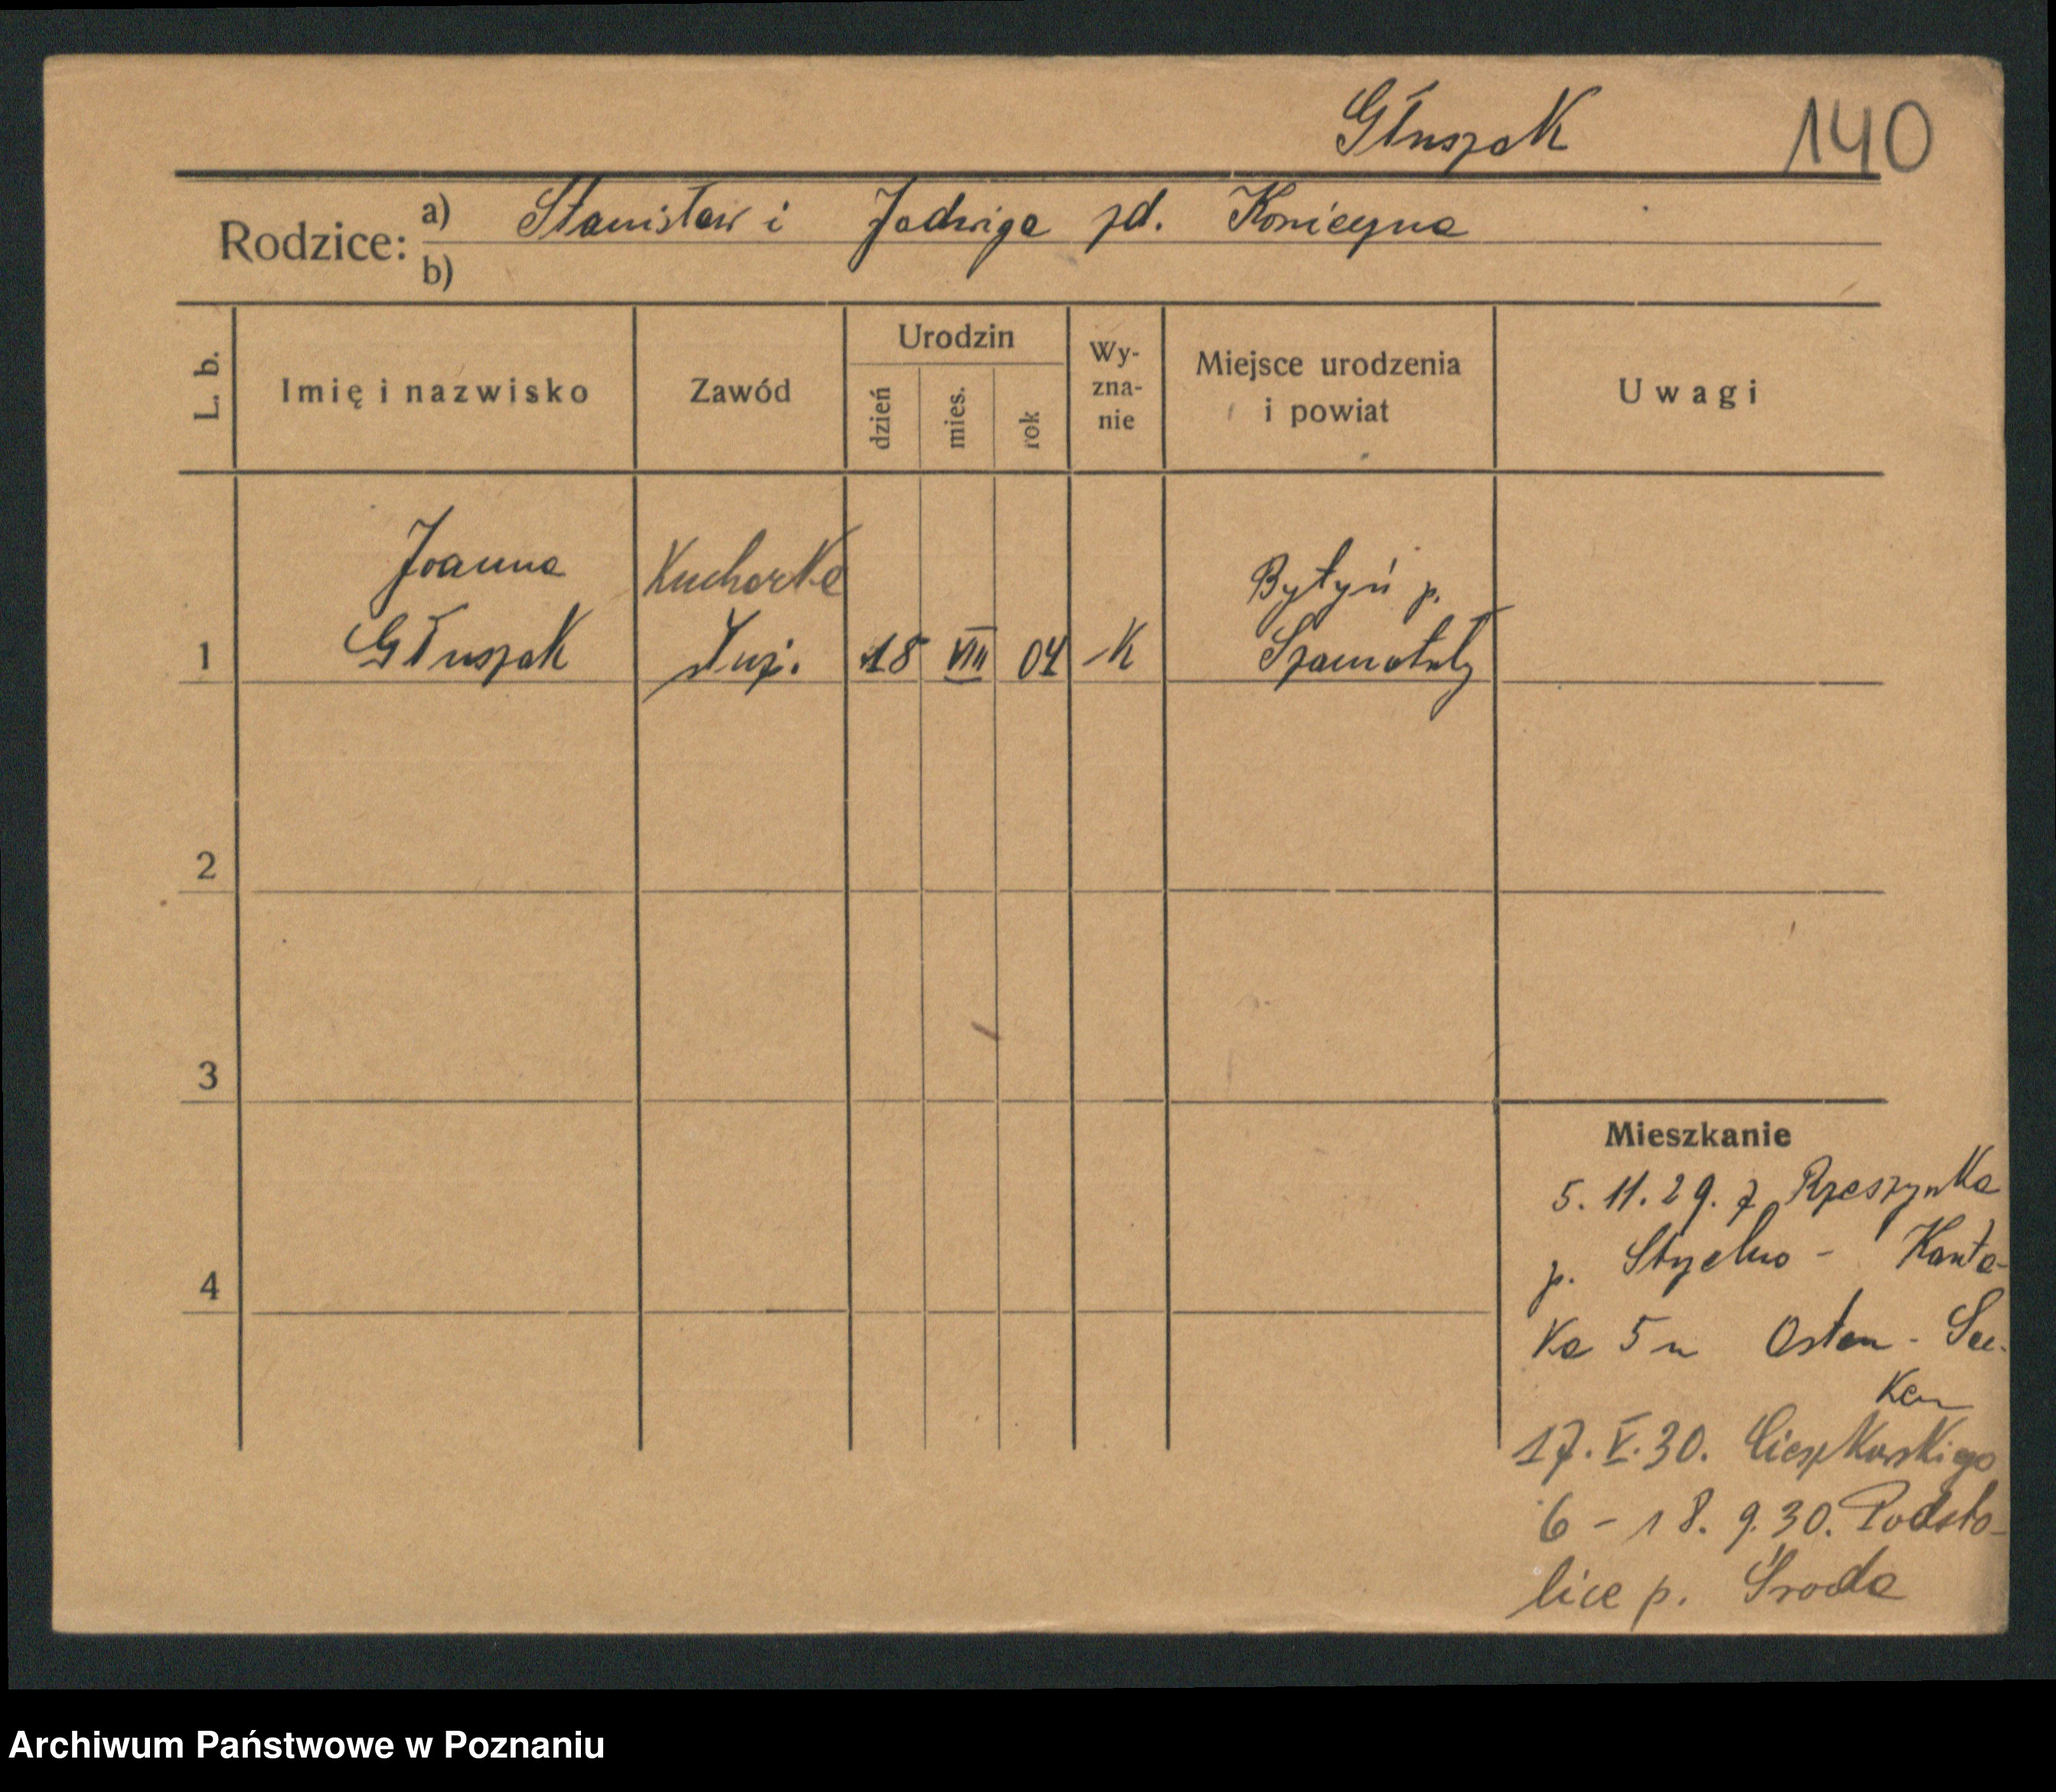 Głuszak 140
Rodzice: a) Stanisław i Jadwiga zd. Konieczna
b)
L. b. Imię i nazwisko Zawód Urodzin dzień mies. rok Wy-zna-nie Miejsce urodzenia i powiat Uwagi
Joanna Kucharka Bytyń p.
1 Głuszak służ. 18 VIII 04 K Szamotuły
2
3
Mieszkanie
5.11.29. z Rzeszynka
p. Strzelno - Kanta-
4
ka 5 u Osten-Sac-
ken
17.V.30. Cieszkowskiego
6 - 18.9.30. Podsto-
lice p. Środa
Archiwum Państwowe w Poznaniu